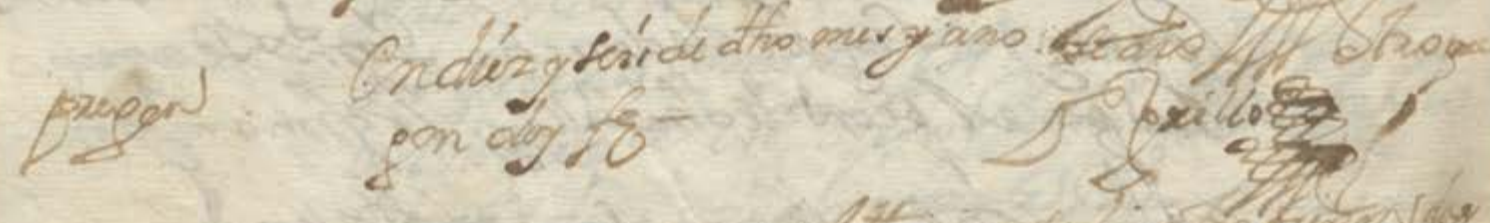 pregon
En diez y seis de dho mes y año se dio otro pre
gon doy fe